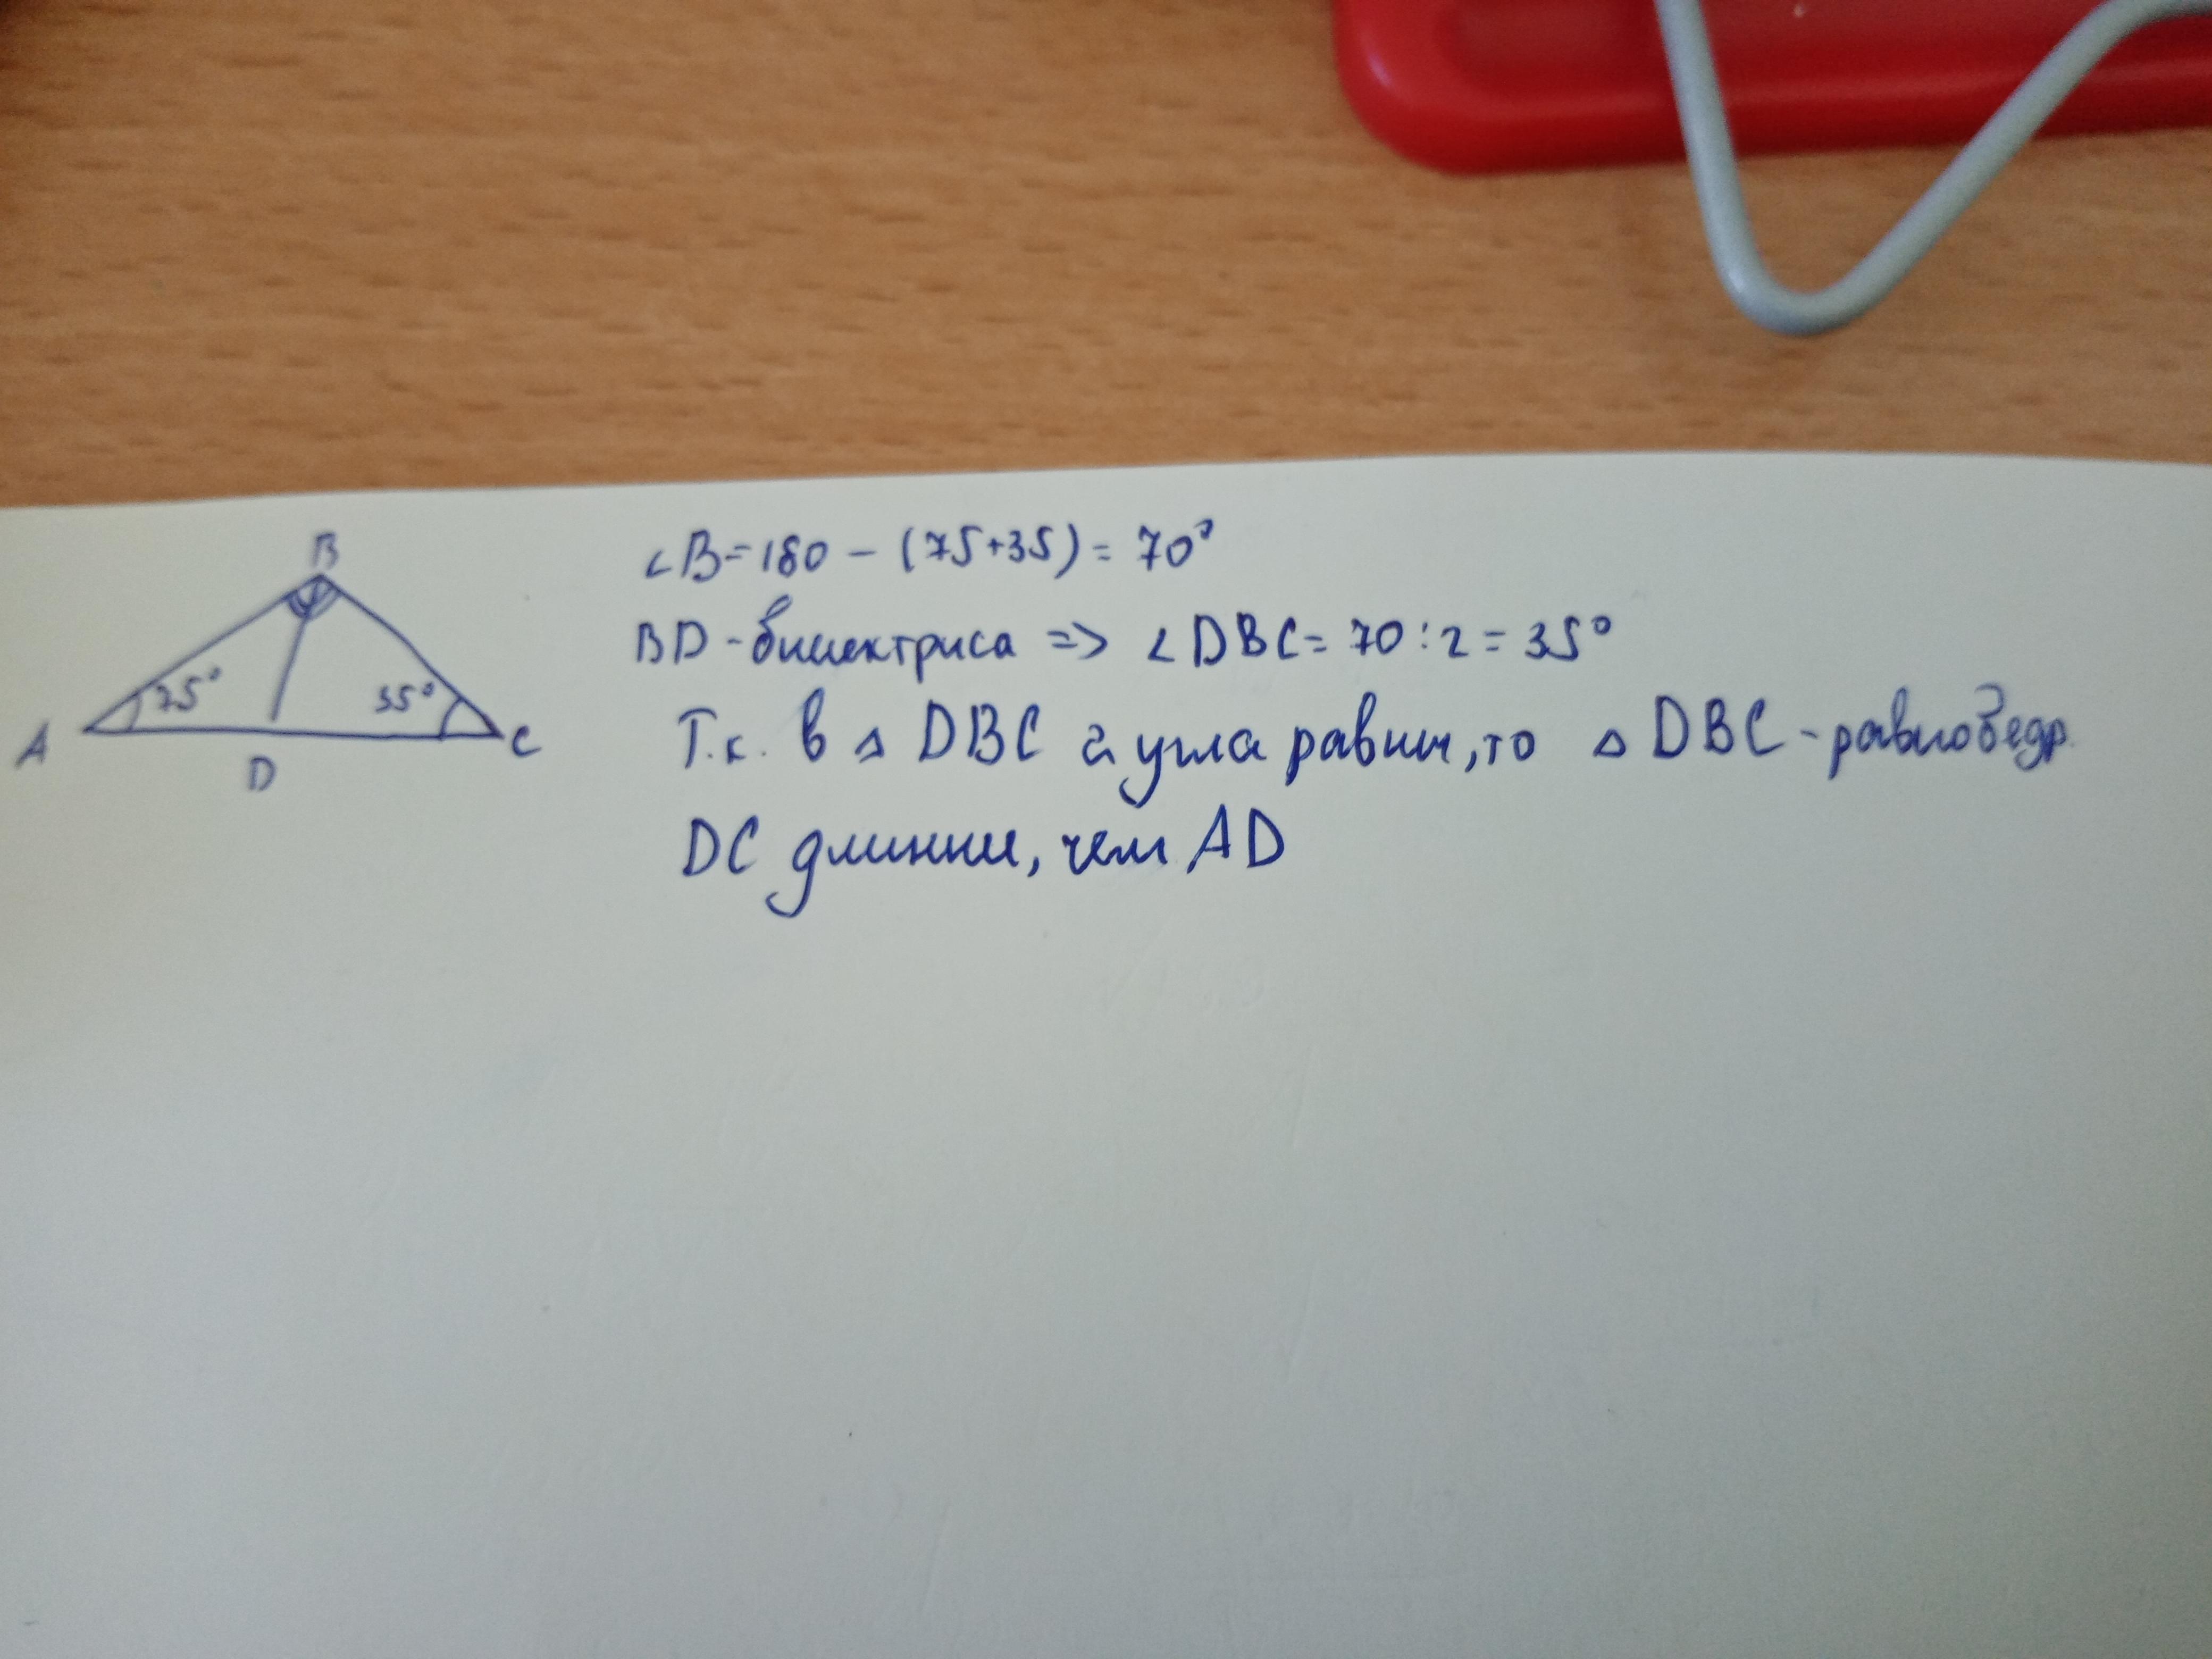 B
75°
35°
A
D
C
∠B=180 - (75+35) = 70°
BD - биссектриса => ∠DBC= 70:2 = 35°
Т.к. в △ DBC 2 угла равны, то △ DBC - равнобедр.
DC длиннее, чем AD